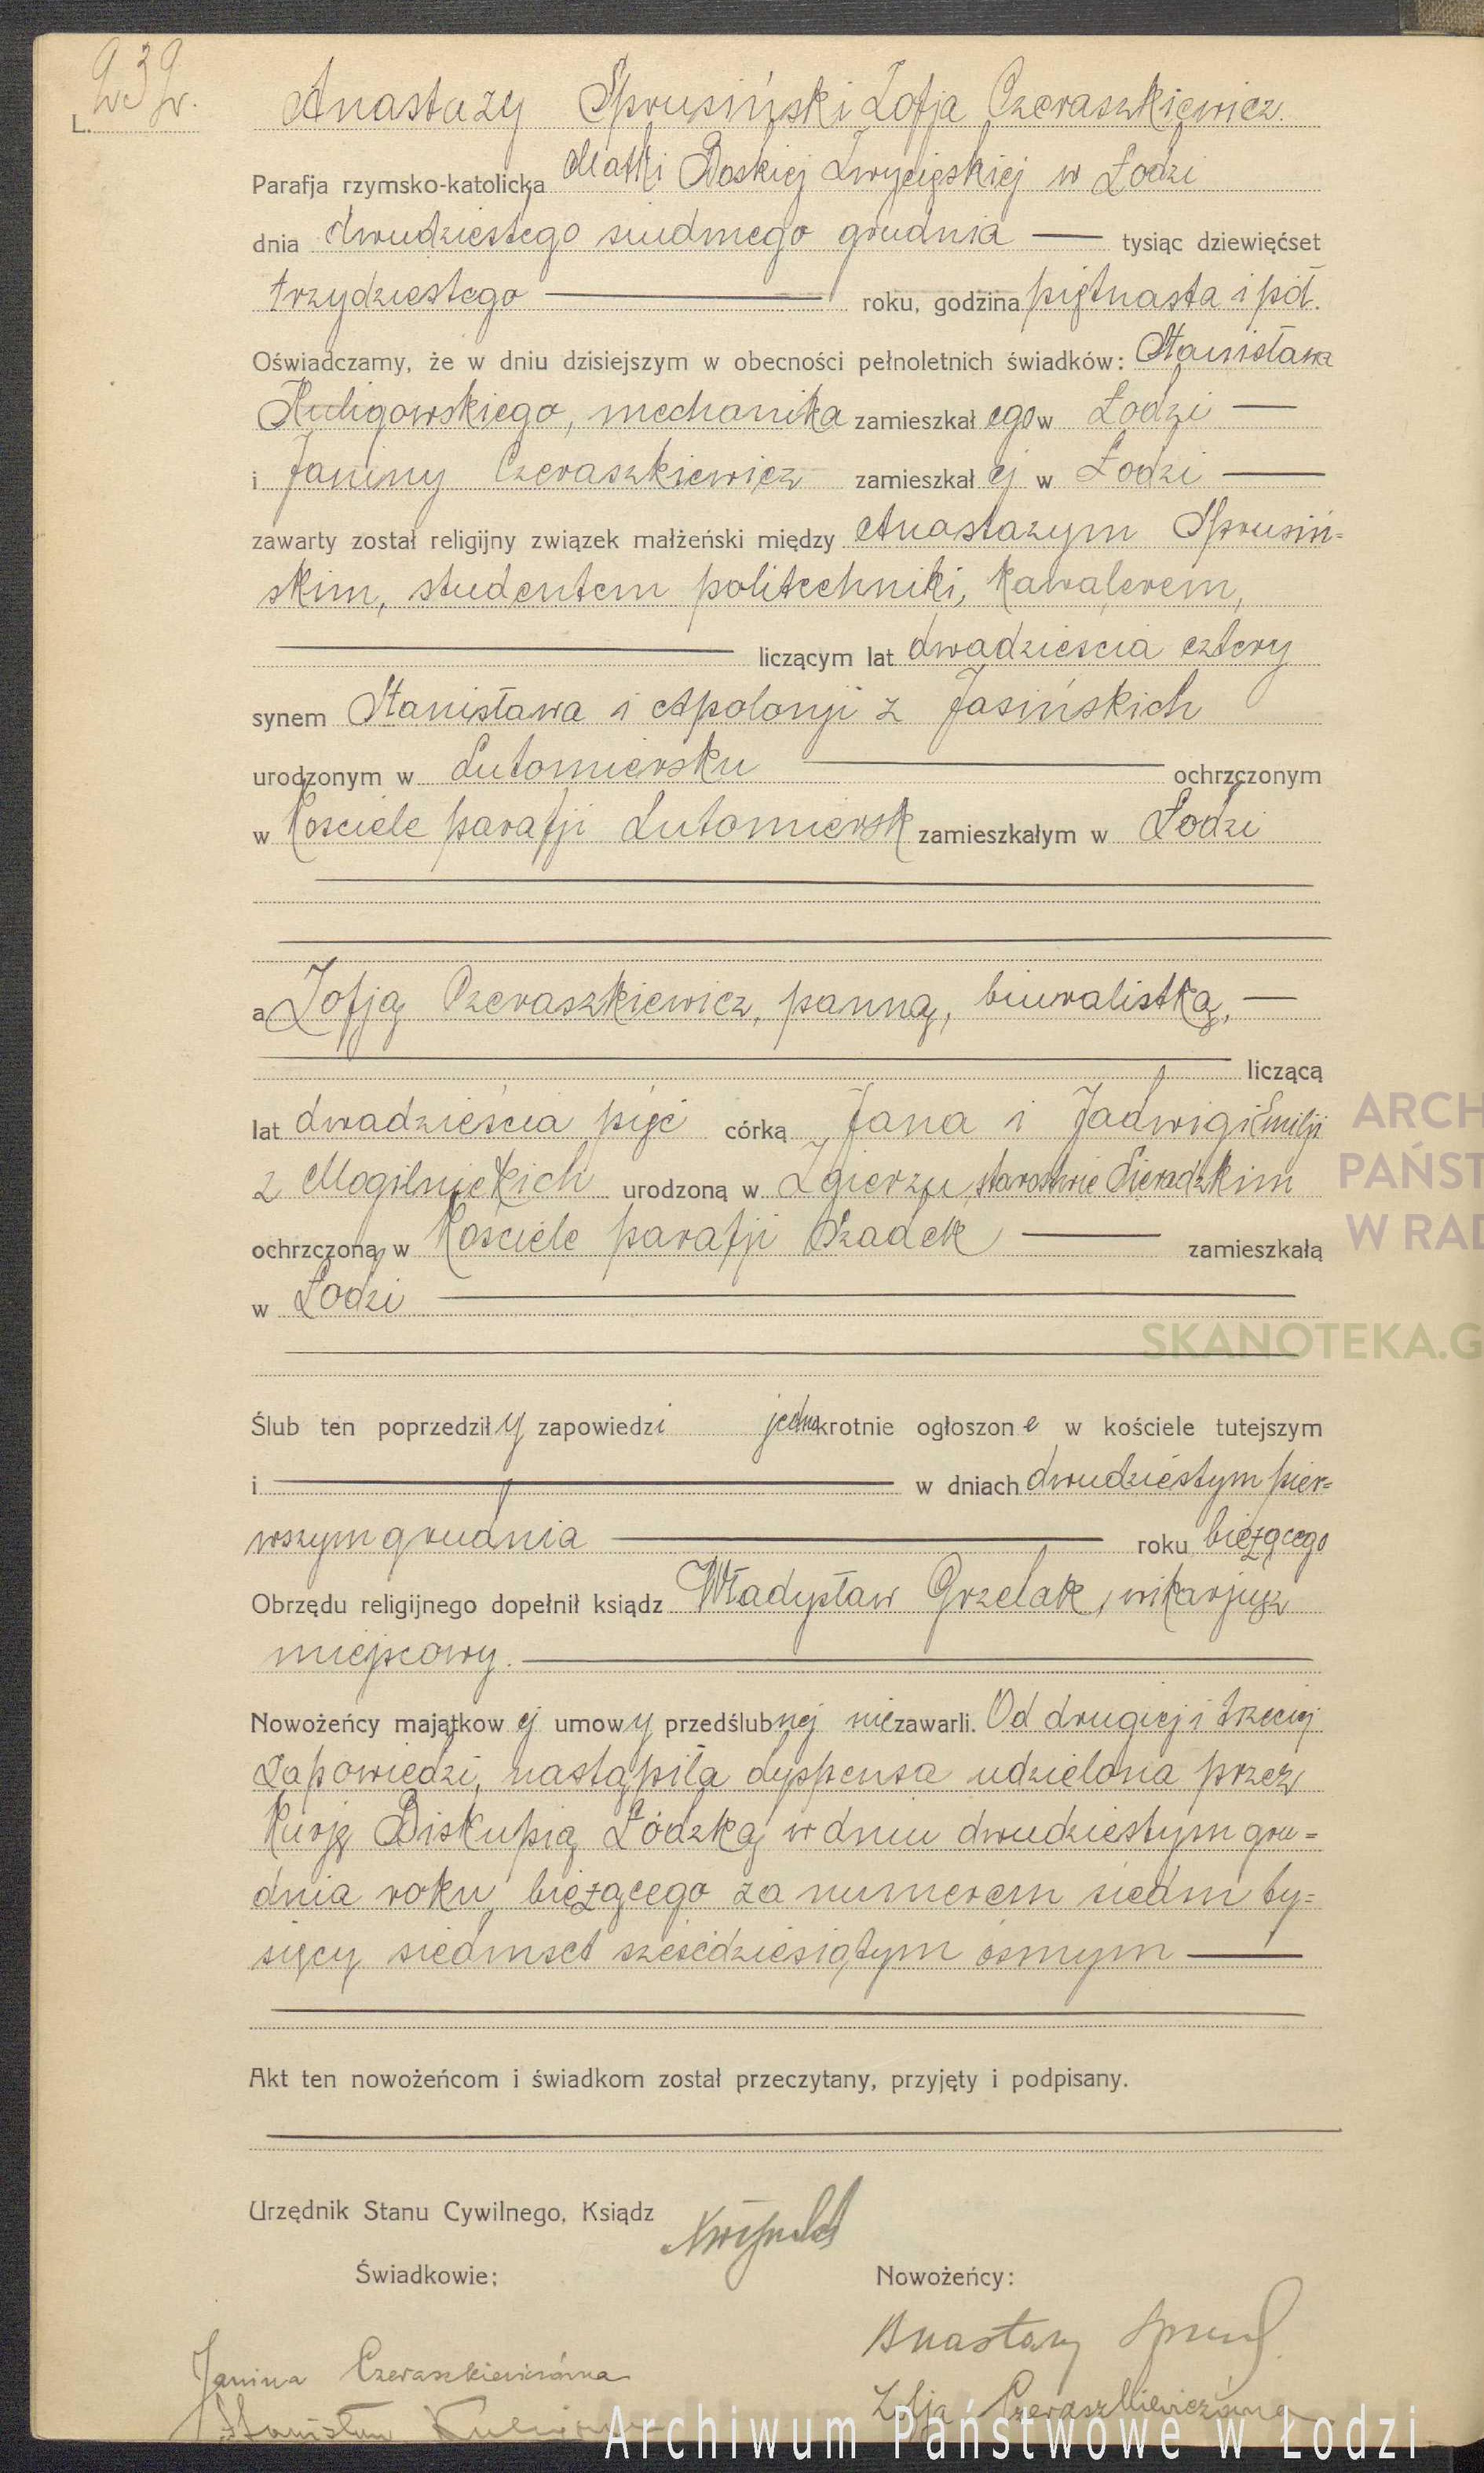 L. 232.
Anastazy Sprusiński Zofja Czeraszkiewicz.
Parafja rzymsko-katolicka Matki Boskiej Zwycięskiej w Łodzi
dnia dwudziestego siódmego grudnia — tysiąc dziewięćset
trzydziestego — roku, godzina piętnasta i pół.
Oświadczamy, że w dniu dzisiejszym w obecności pełnoletnich świadków: Stanisława
Kuligowskiego, mechanika zamieszkałego w Łodzi —
i Janiny Czeraszkiewicz zamieszkałej w Łodzi —
zawarty został religijny związek małżeński między Anastazym Sprusiń=
skim, studentem politechniki, kawalerem,
— liczącym lat dwadzieścia cztery
synem Stanisława i Apolonji z Jasińskich
urodzonym w Lutomiersku — ochrzczonym
w Kościele parafji Lutomiersk zamieszkałym w Łodzi
a Zofją Czeraszkiewicz, panną, biuralistką, —
liczącą
lat dwadzieścia pięć córką Jana i Jadwigi Emilji
z Mogilnickich urodzoną w Zgierzu starostwie Sieradzkim
ochrzczoną w Kościele parafji Szadek — zamieszkałą
w Łodzi —
Ślub ten poprzedziły zapowiedzi jednokrotnie ogłoszone w kościele tutejszym
i — w dniach dwudziestym pier=
wszym grudnia — roku bieżącego
Obrzędu religijnego dopełnił ksiądz Władysław Grzelak, wikarjusz
miejscowy. —
Nowożeńcy majątkowej umowy przedślubnej nie zawarli. Od drugiej i trzeciej
zapowiedzi, nastąpiła dyspensa udzielona przez
Kurję Biskupią Łódzką w dniu dwudziestym gru=
dnia roku bieżącego za numerem siedm ty=
sięcy siedmset sześćdziesiątym ósmym —
Akt ten nowożeńcom i świadkom został przeczytany, przyjęty i podpisany.
Urzędnik Stanu Cywilnego, Ksiądz
Świadkowie:
Nowożeńcy:
Anastazy
Janina Czeraszkiewiczówna
Zofja Czeraszkiewiczówna
Stanisław
ARCH
PAŃST
W RAD
SKANOTEKA.G
Archiwum Państwowe w Łodzi